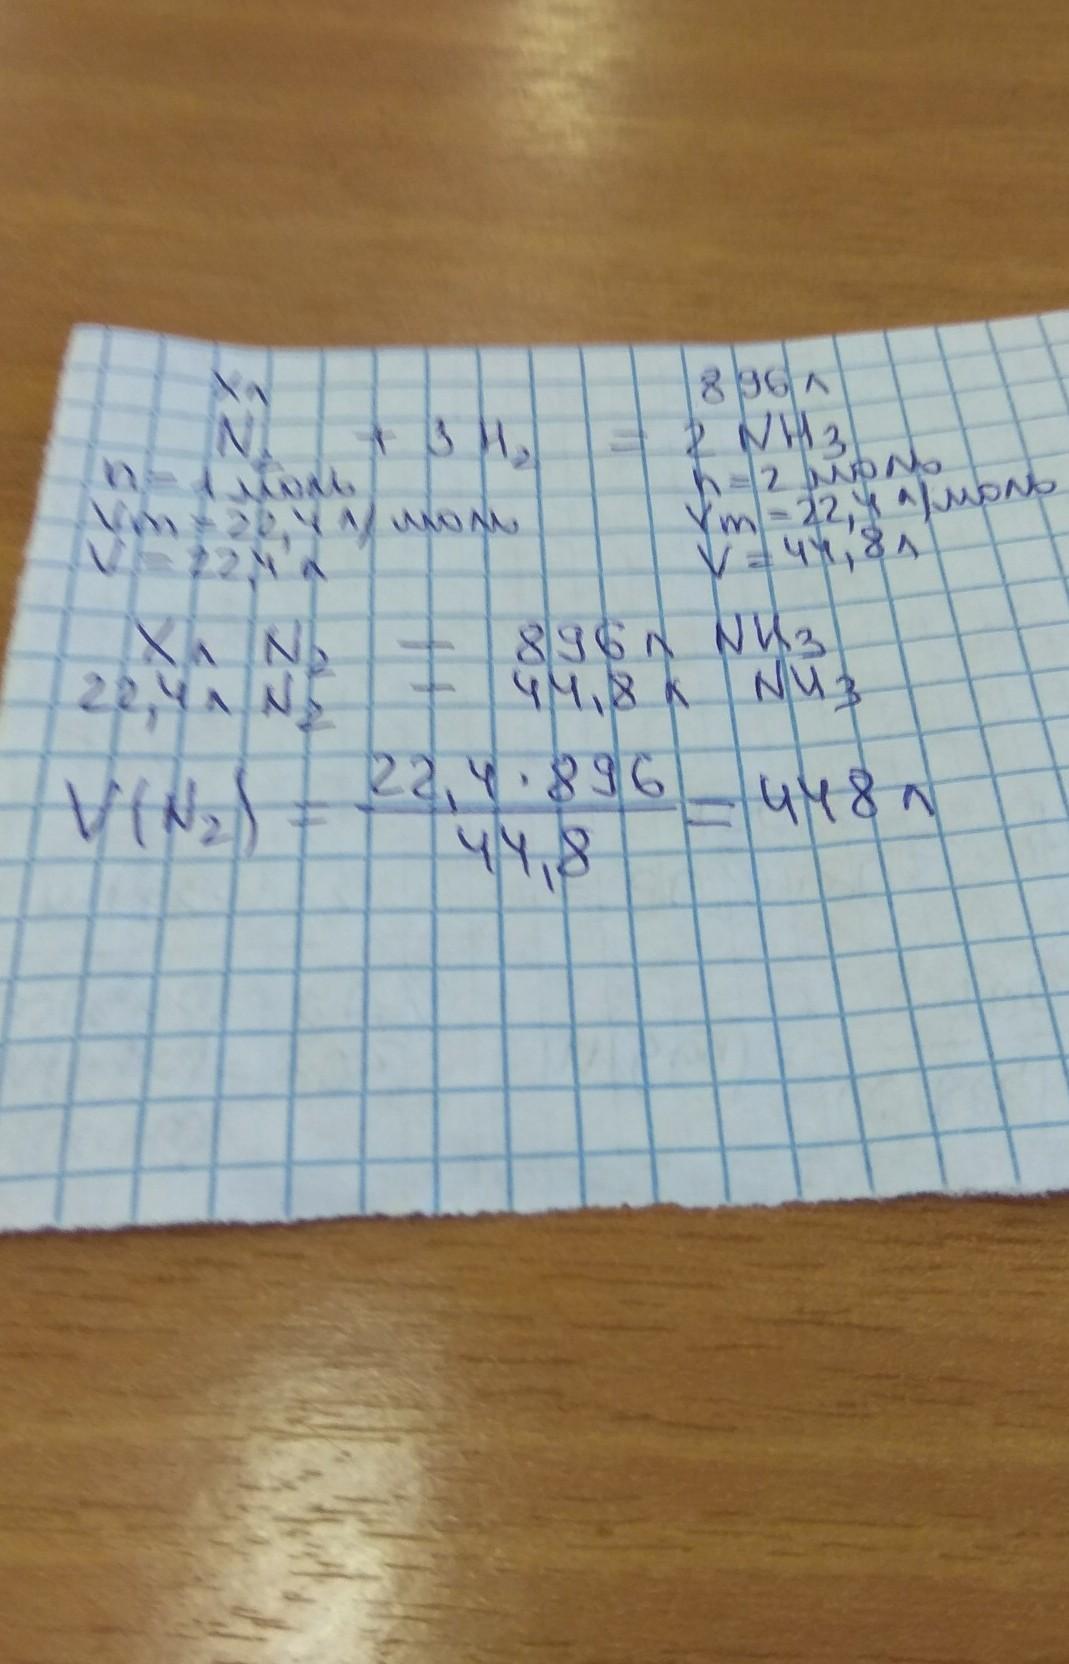 Xл 896 л
N₂ + 3 H₂ = 2 NH₃
n = 1 моль n = 2 моль
Vm = 22,4 л/моль Vm = 22,4 л/моль
V = 22,4 л V = 44,8 л
Xл N₂ — 896 л NH₃
22,4 л N₂ — 44,8 л NH₃
V(N₂) = 22,4 · 896 / 44,8 = 448 л